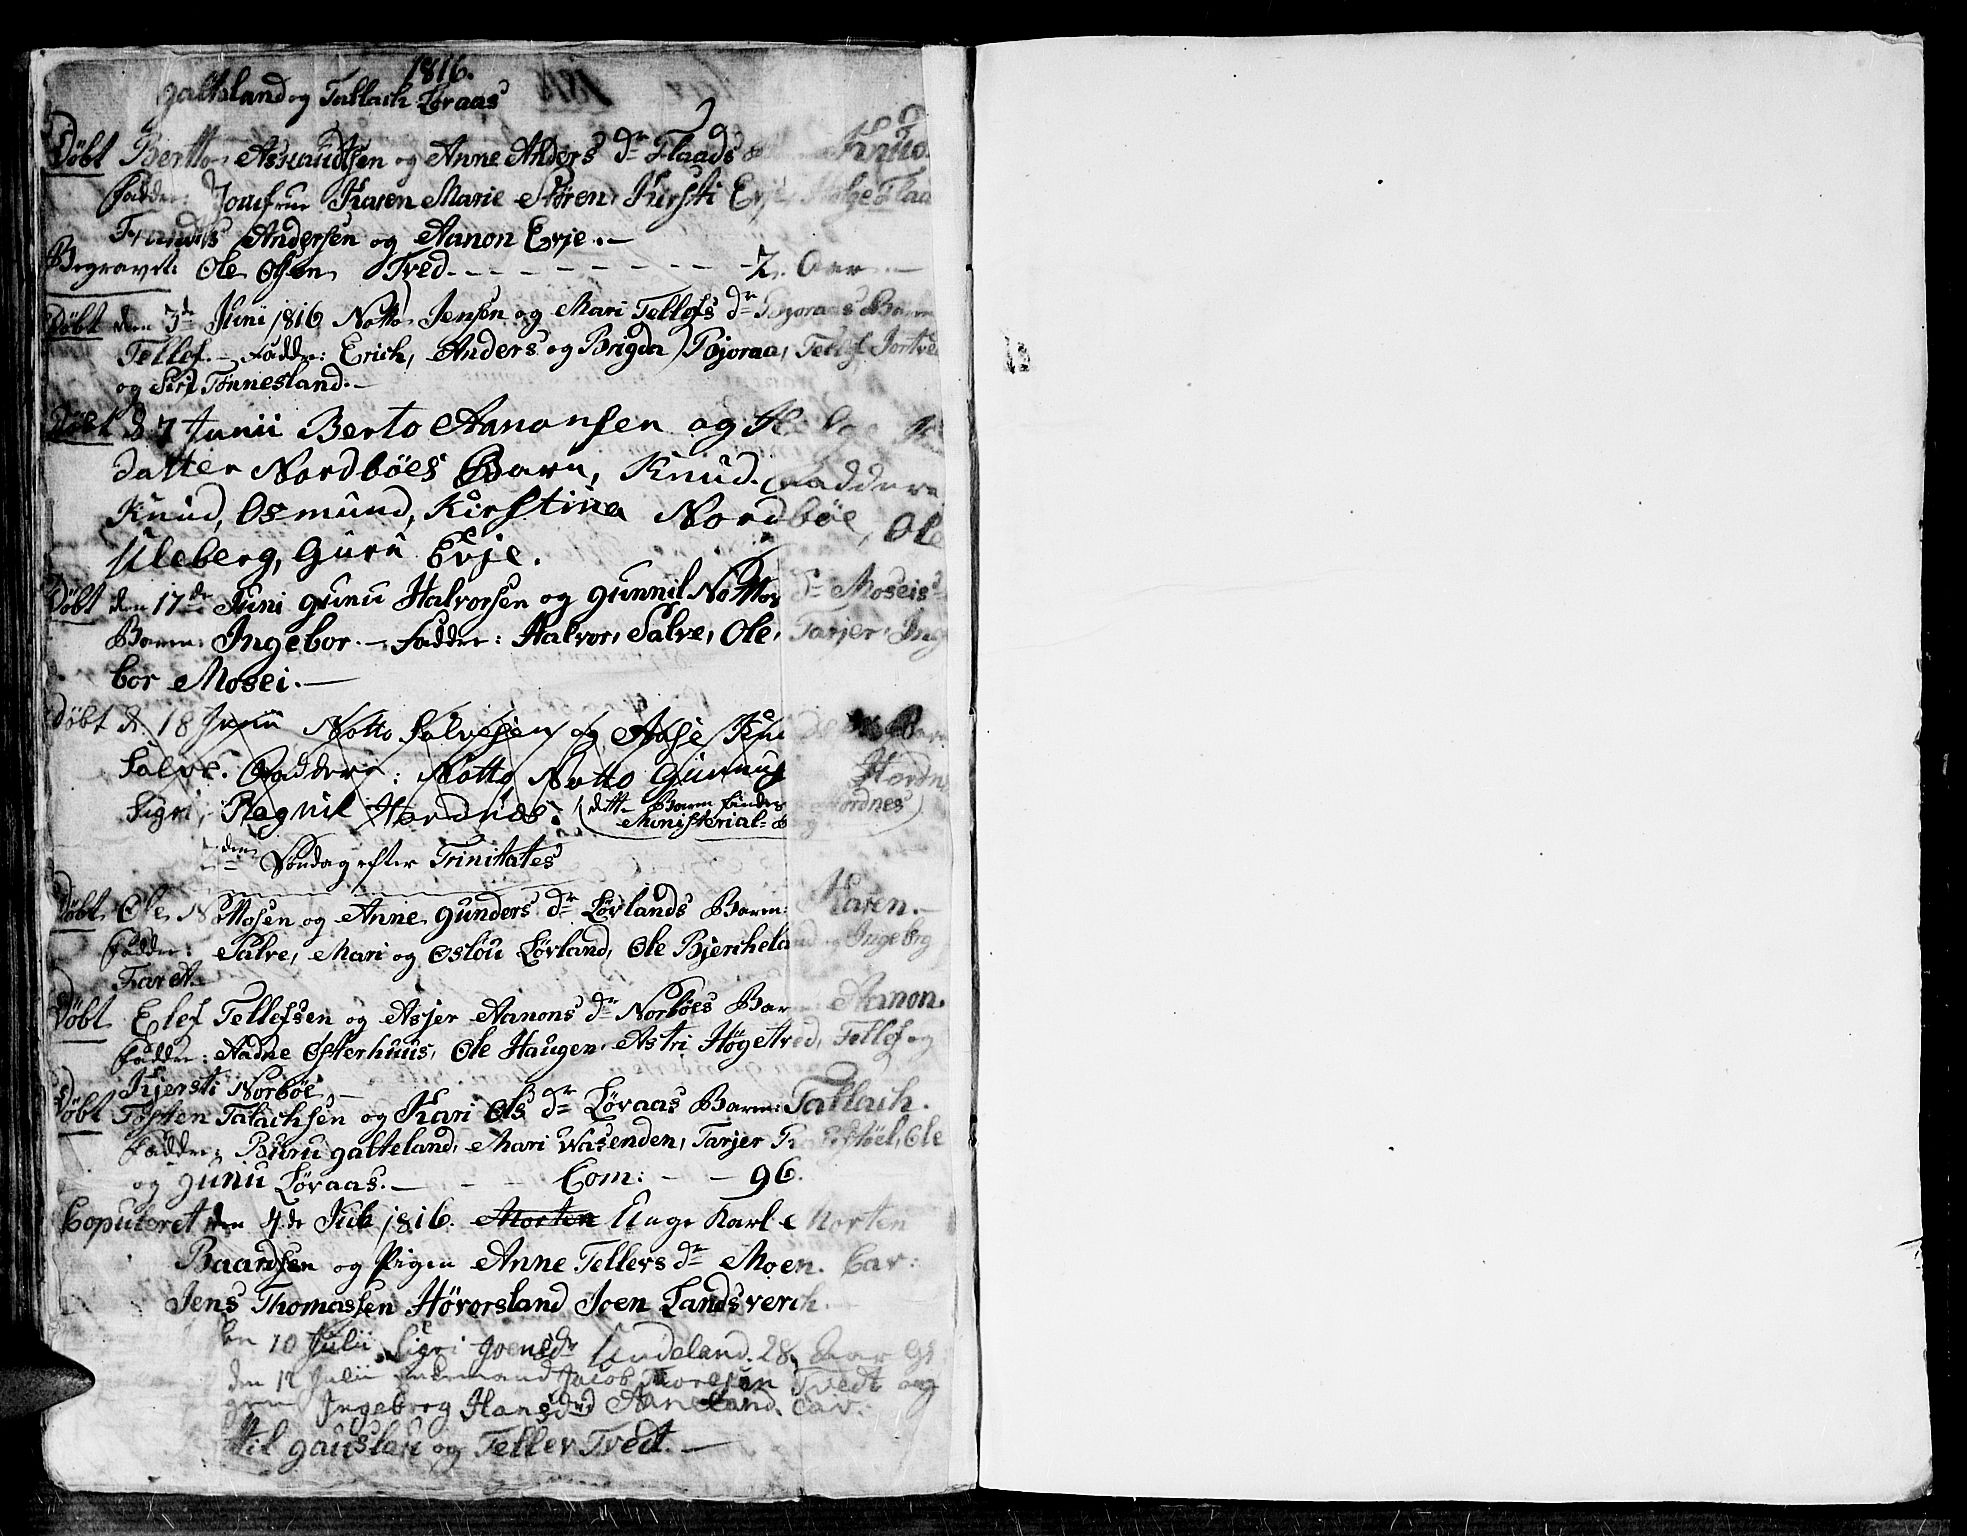 1816.
Galteland og Tallach Løraas
Døbt Bertto Asmundsen og Anne Anders dr Flaads Knud.
Fadder: Jomfrue Karen Marie Støren, Kirsti Evje, Helge Flaa
Andersen og Aanon Evje.
Begravet: Ole Olsen Tved - - - - - - - - - 7. Aar.
Døbt den 3de Juni 1816 Notto Jensøn og Mari Tellefs dr Bjoraas Barn
Tellef. Fadder: Erich, Anders og Brigda Bjoraa, Tellef Jortve
og Siri Tønnesland.
Døbt d. 7 Junii Berto Aanonsen og Helge
datter Nordbøes Barn, Knud. Faddere
Knud, Osmund, Kirstina Nordbøe, Ole
Uleberg, Guru Evje.
Døbt den 17de Juni Gunu Halvorsen og Gunnil Nottos dr Moseis
Barn: Ingebor. Fadder: Halvor, Salve, Ole, Tarjer, Inge
bor Mosei.
Døbt d. 18 Junii Notto Salvesen og Aase
Salve. Faddere: Notto Notto Gunnu Hordn
Sigri, Regnil Hordnes. (dette Barn findes Hordnes
Ministerial-B
den Søndag efter Trinitates
Døbt Ole Nottosen og Anne Gunders dr Løvlands Barn: Karen.
Fadder: Salve, Mari og Oslou Løvland, Ole Bjercheland og Ingeborg
Faret.
Døbt Elef Tellefsen og Asjer Aanons dr Norbøes Barn Aanon.
Fadder: Aadne Østerhuus, Ole Haugen, Astri Høgetved, Tellef og
Kjersti Norbøe.
Døbt Tosten Talachsen og Kari Ols dr Løraas Barn: Tallach.
Fadder: Buru Galteland, Mari Wasenden, Tarjer Ole
og Gunu Løraas. - - - Com: - - 96.
Coputeret den 4de Juli 1816. Morten Unge Karl Morten
Baardsen og Pigen Anne Tellefs dr Moen. Cav:
Jens Thomassen Høvorsland Joen Landsverch.
den 10 Julii Sigri Joensdr Uudeland. 28 Aar
den 12 Julii Enkemand Jacob Tvedt og
Ingeborg Hansdr Aaneland. Cav:
Gauslau og Tellev Tvedt.